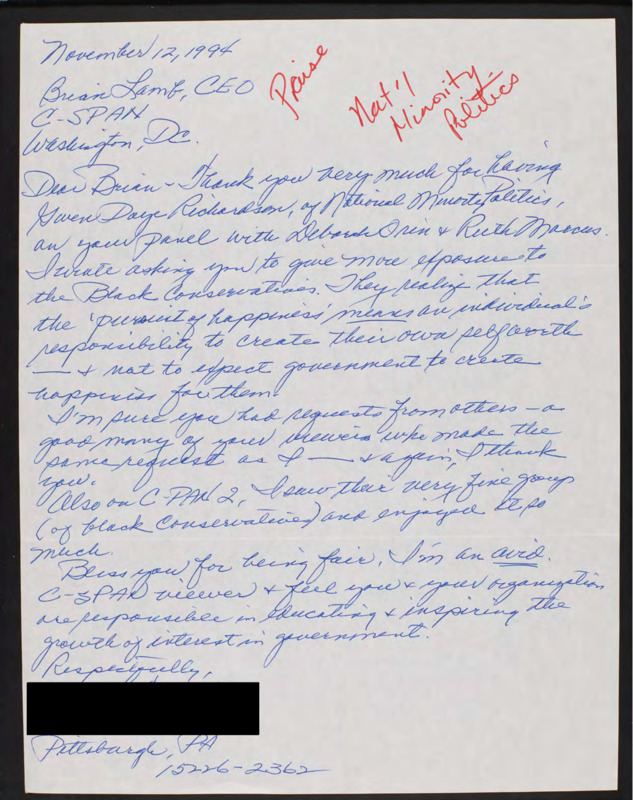 November 12, 1994
Praise
Nat'l
Minority
Politics
Brian Lamb, CEO
C-SPAN
Washington, DC.
Dear Brian - Thank you very much for having
Gwen Daye Richardson, of National Minority Politics,
on your panel with Deborah Orin & Ruth Marcus.
I wrote asking you to give more exposure to
the Black Conservatives. They realize that
the 'pursuit of happiness' means an individual's
responsibility to create their own self worth
— & not to expect government to create
happiness for them.
I'm sure you had requests from others – a
good many of your viewers who made the
same request as I — & again, I thank
you.
Also on C-PAN 2, I saw their very fine group
(of black Conservatives) and enjoyed it so
much.
Bless you for being fair. I'm an avid
C-SPAN viewer & feel you & your organization
are responsible in educating & inspiring the
growth of interest in government.
Respectfully,
Pittsburgh, PA
15226-2362